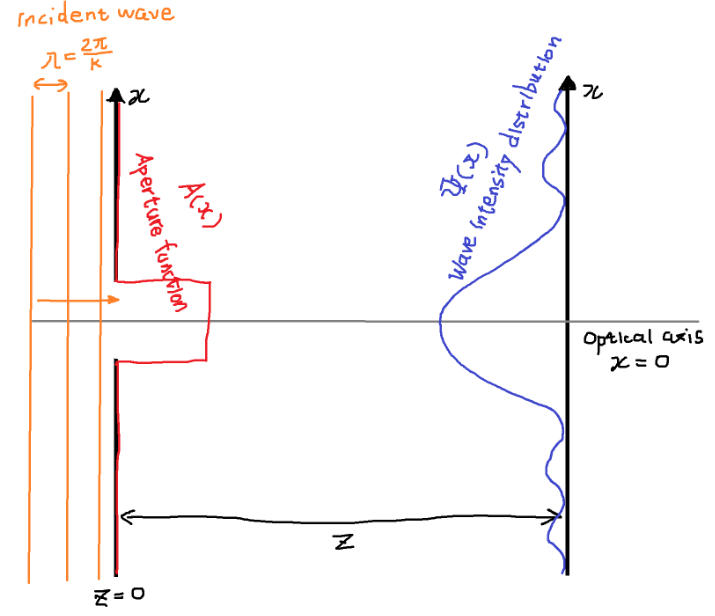 Incident wave
λ = 2π/k
x
A(x)
Aperture function
Ψ(x)
Wave intensity distribution
x
Optical axis
x = 0
z
z = 0